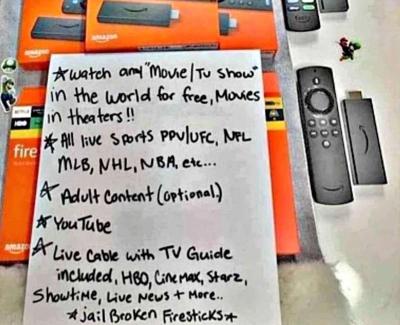 amazon
amazon
★ Watch any "Movie/Tv Show"
in the world for free, Movies
in theaters!!
★ All live Sports PPV/UFC, NFL
MLB, NHL, NBA, etc...
★ Adult Content (optional)
★ YouTube
★ Live Cable with TV Guide
included, HBO, Cinemax, Starz,
Showtime, Live News + More..
★ Jail Broken Firesticks ★
NETFLIX
HBO
fire
amazon